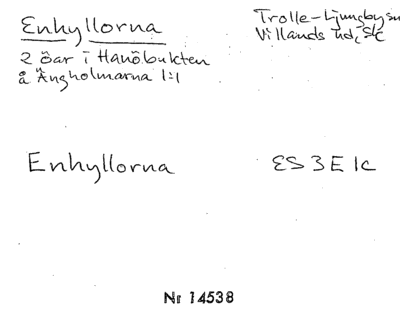 Enhyllorna
Trolle-Ljungby sn
Villands hd, Sk
2 öar i Hanöbukten
å Ängholmarna 1:1
Enhyllorna
ES 3 E 1c
Nr 14538